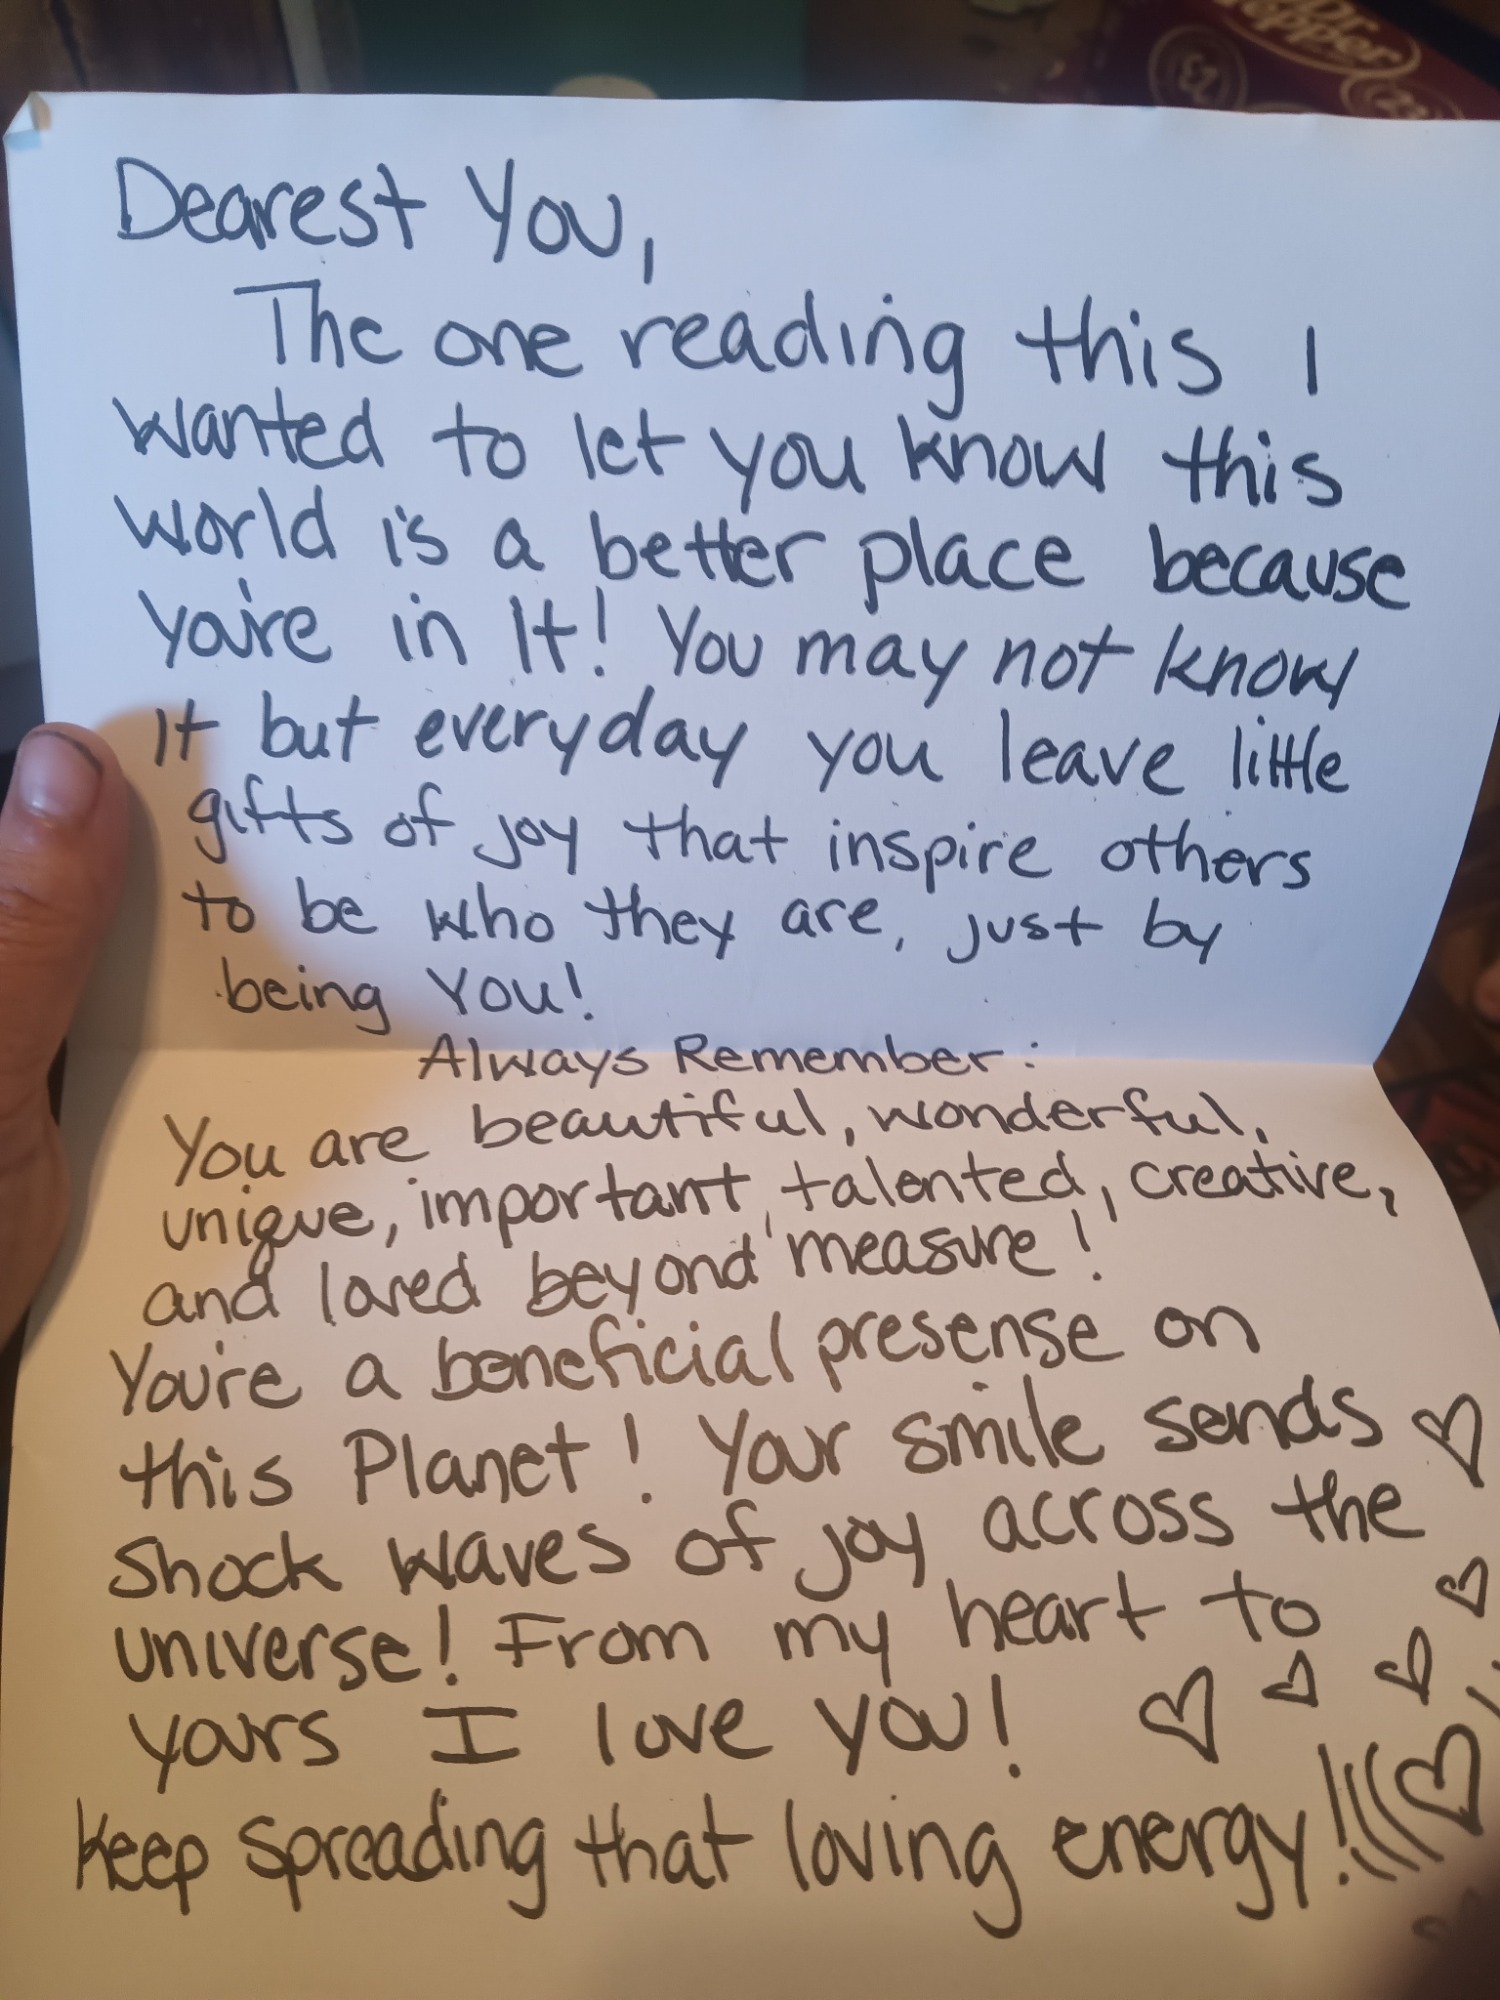 Dr Pepper
23
23
Dearest You,
The one reading this I
wanted to let you know this
world is a better place because
you're in It! You may not know
It but everyday you leave little
gifts of joy that inspire others
to be who they are, just by
being You!
Always Remember:
You are beautiful, wonderful,
unique, important, talented, creative,
and loved beyond measure!
You're a beneficial presense on
this Planet! Your smile sends
Shock waves of joy across the
universe! From my heart to
yours I love you!
Keep spreading that loving energy!